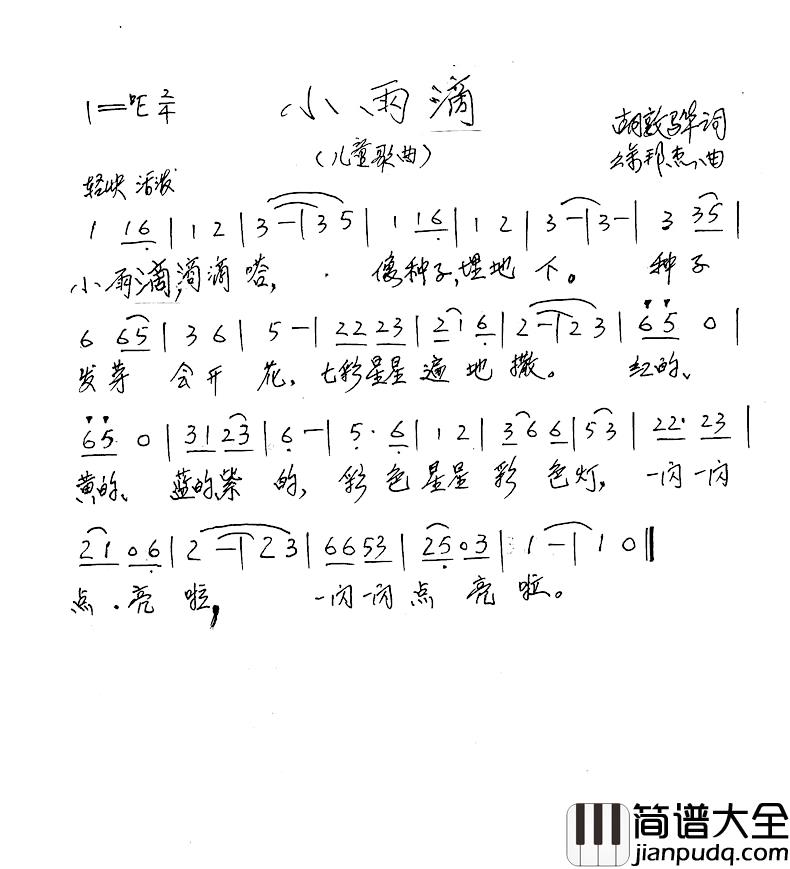 小雨滴
1=♭E 2/4
(儿童歌曲)
胡敦骅词
徐邦杰曲
轻快 活泼
1 16 | 1 2 | 3 — | 3 5 | 1 16 | 1 2 | 3 — | 3 — | 3 35 |
小雨滴,滴滴嗒, 像种子,埋地下。 种子
6 65 | 3 6 | 5 — | 22 23 | 2 1 6 | 2 — | 2 3 | 65 0 |
发芽 会开花,七彩星星遍地撒。 红的、
65 0 | 31 23 | 6 — | 5 · 6 | 1 2 | 3 6 6 | 53 | 22· 23 |
黄的、蓝的紫的,彩色星星彩色灯,一闪一闪
21 06 | 2 — | 2 3 | 66 53 | 25 03 | 1 — | 1 0 ||
点·亮啦, 一闪一闪点亮啦。
简谱大全
jianpudq.com